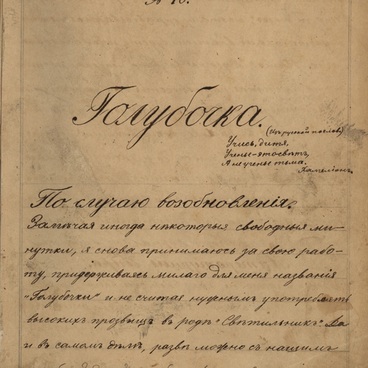 № 10.
Голубочка.
Учись, дитя,
Ученье-то свѣтъ,
А неученье тьма.
По случаю возобновленія.
Замѣчая иногда нѣкоторыя свободныя ми-
нутки, я снова принимаюсь за свою рабо-
ту, придерживаясь милаго для меня названія
"Голубочки" и не считая нужнымъ употреблять
высокихъ прозвищъ въ родѣ "Свѣтильникъ". Да
и въ самомъ дѣлѣ, развѣ можно съ нашимъ